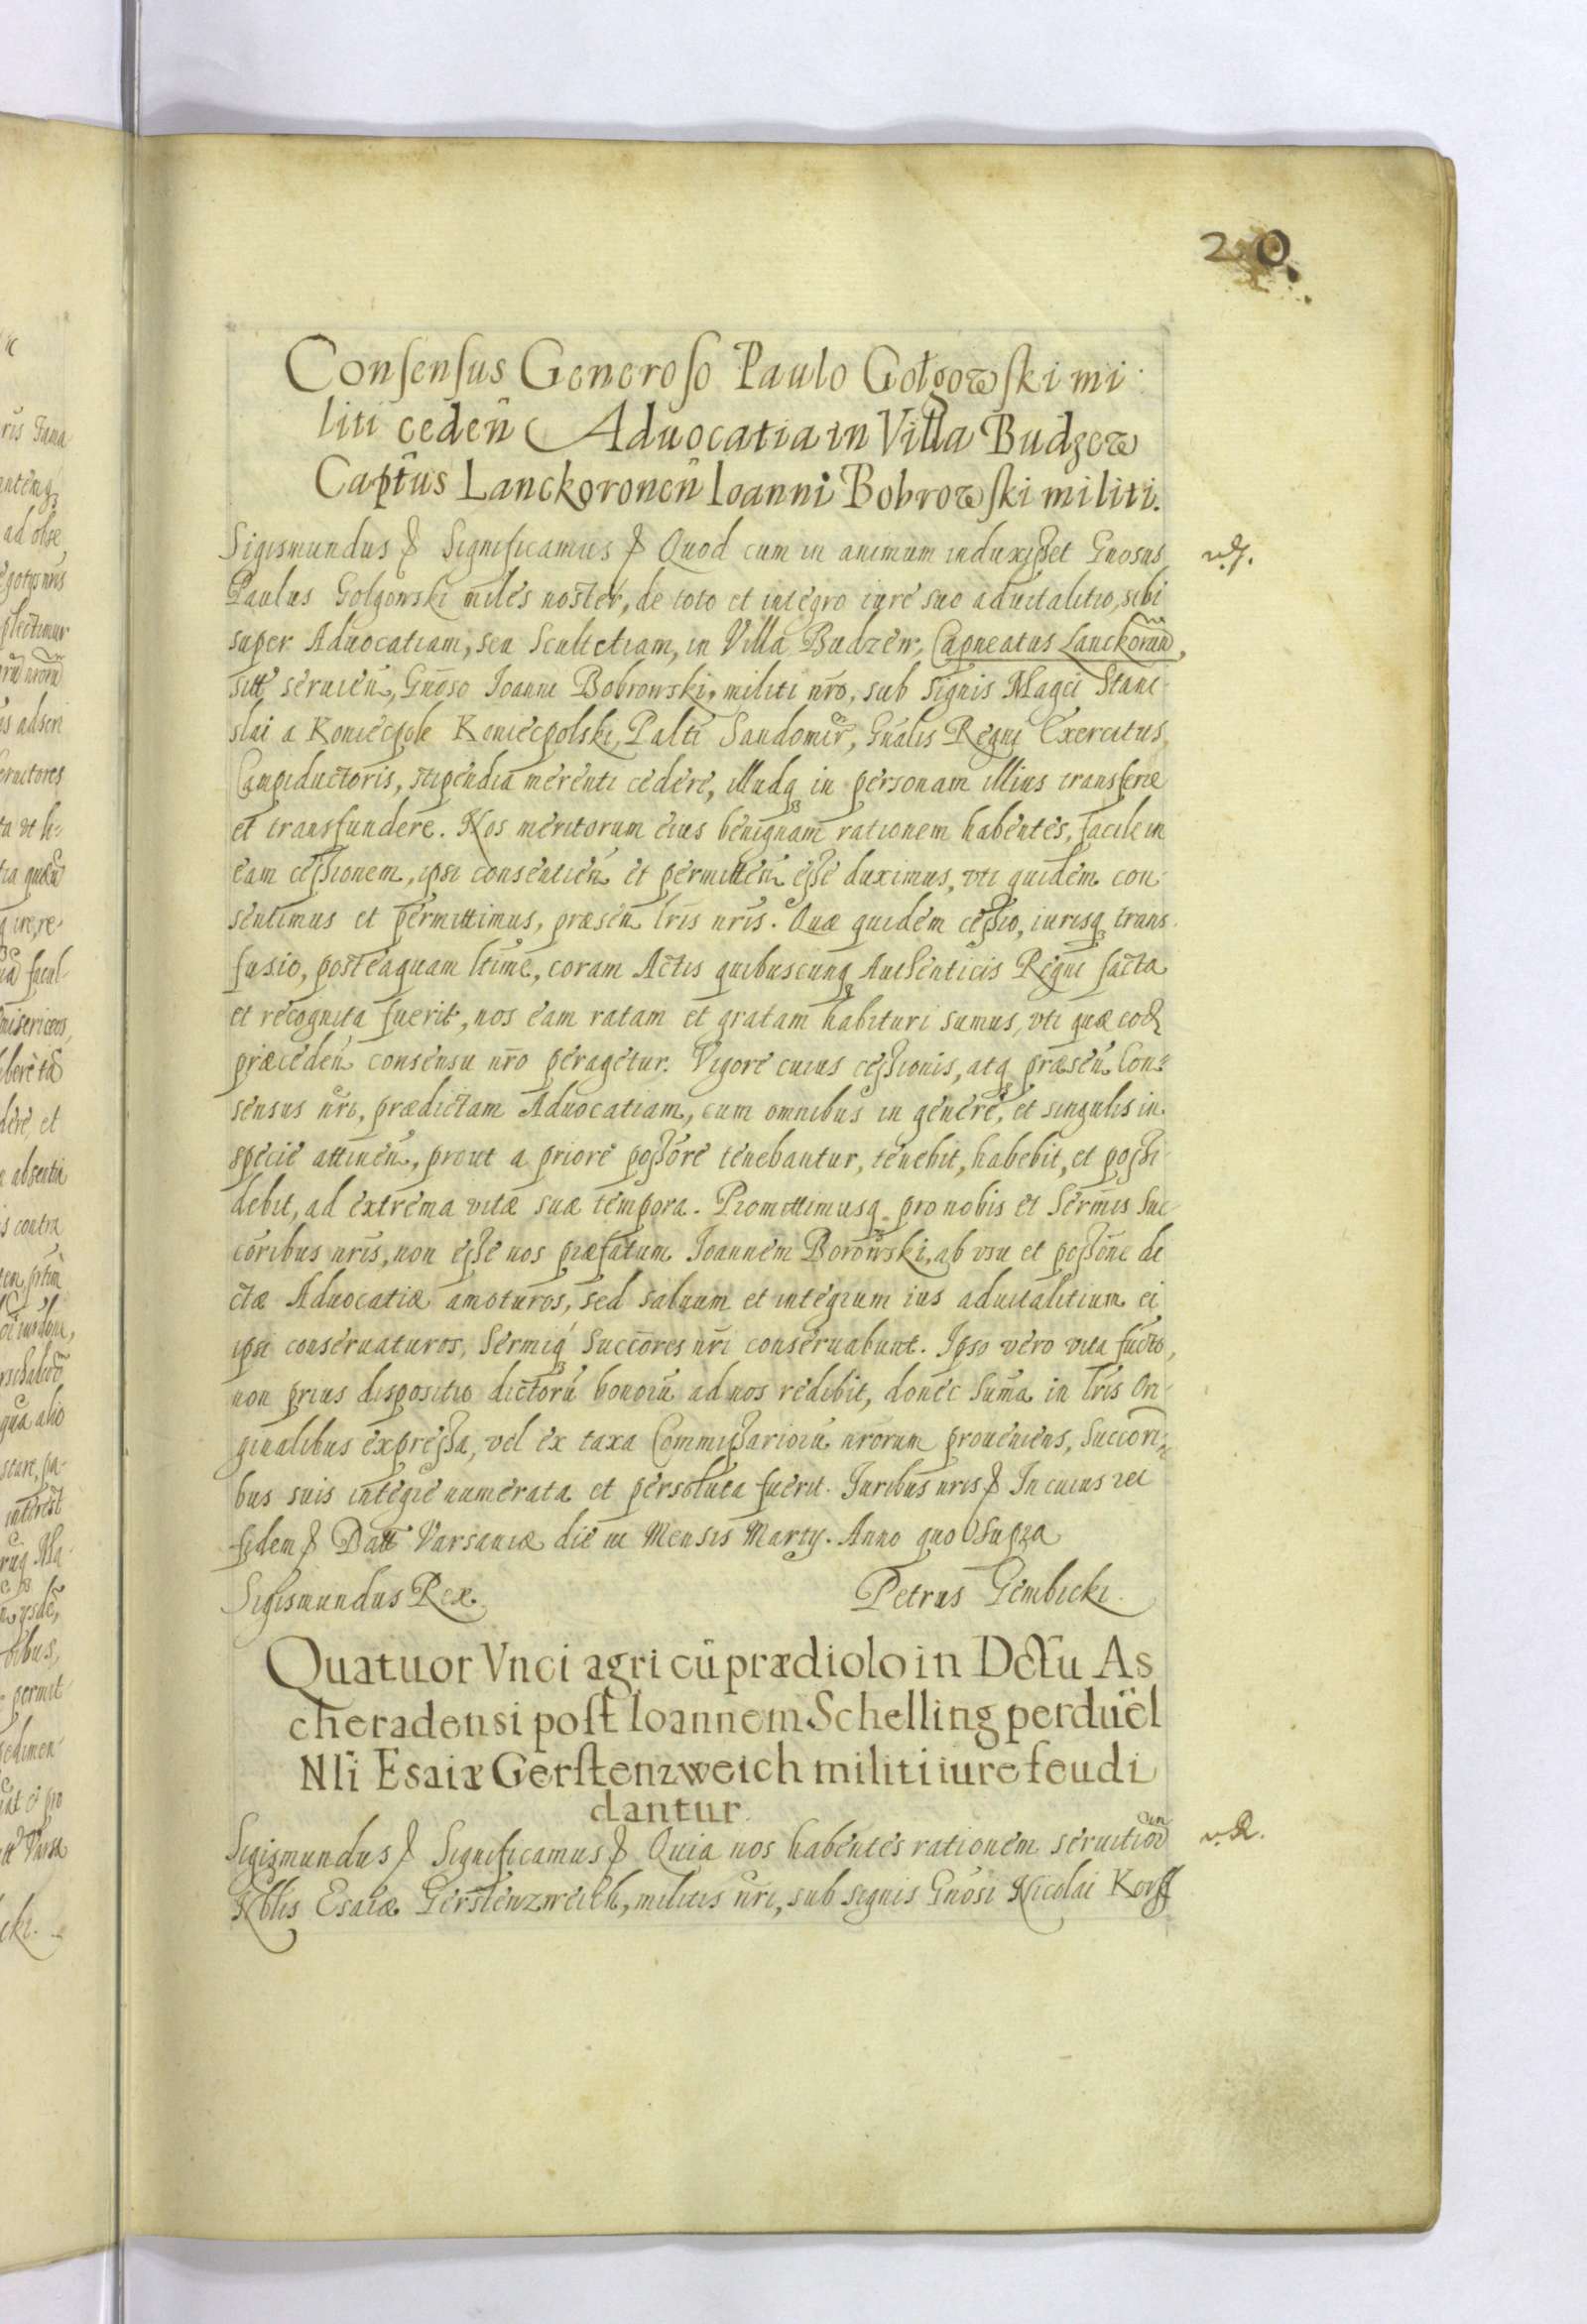 20.
Consensus Generoso Paulo Gołgowski mi:
liti ceden̄ Aduocatia in Villa Budzew
Capt̄us Lanckoronen̄ Ioanni Bobrowski militi.
Sigismundus & Significamus & Quod cum in animum induxisset Gnosus
Paulus Golgowski miles noster, de toto et integro iure suo aduitalitio, sibi
super Aduocatiam, seu Scultetiam, in Villa Budzew, Capneatus Lanckoron̄,
sitt̄ seruien̄, Gnōso Ioanni Bobrowski, militi nr̄o, sub signis Magci Stani-
slai a Koniecpole Koniecpolski, Palti Sandomir̄, Gn̄alis Regni Exercitus
Campiductoris, stipendia merenti cedere, illudq in personam illius transferre
et transfundere. Nos meritorum eius benignam rationem habentes, facile in
eam cessionem, ipsi consentien̄ et permitten̄ esse duximus, vti quidem con-
sentimus et permittimus, præsen̄ lr̄is nr̄is. Quæ quidem cessio, iurisq trans-
fusio, posteaquam ltime, coram Actis quibuscunq Authenticis Regni facta
et recognita fuerit, nos eam ratam et gratam habituri sumus, vti quæ cod
præceden̄ consensu nr̄o peragetur. Vigore cuius cessionis, atq præsen̄ Con-
sensus nr̄i, prædictam Aduocatiam, cum omnibus in genere, et singulis in
specie attinen̄, prout a priore possore tenebantur, tenebit, habebit, et possi-
debit, ad extrema vitæ suæ tempora. Promittimusq pro nobis et Sermis Suc-
coribus nr̄is, non esse nos præfatum Ioannem Borowski, ab vsu et possone di
ctæ Aduocatiæ amoturos, sed saluum et integrum ius aduitalitium ei
ipsi conseruaturos, Sermiq Succores nr̄i conseruabunt. Ipso vero vita functo,
non prius dispositio dictorū bonorū ad nos redibit, donec Suma in lr̄is Ori-
ginalibus expressa, vel ex taxa Commissariorū nrorum proueniens, Succori-
bus suis integre numerata et persoluta fuerit. Iuribus nris & In cuius rei
fidem & Datt Varsauiæ die III Mensis Martij. Anno quo Supra
Sigismundus Rex. Petrus Gembicki.
Quatuor Vnci agri cū prædiolo in Dctu As
cheradensi post Ioannem Schelling perduel
Nli Esaiæ Gerstenzweich militi iure feudi
dantur.
Sigizmundus & Significamus & Quia nos habentes rationem seruitior̄
Nblis Esaiæ Gerstenzweich, militis nr̄i, sub signis Gnōsi Nicolai Korff